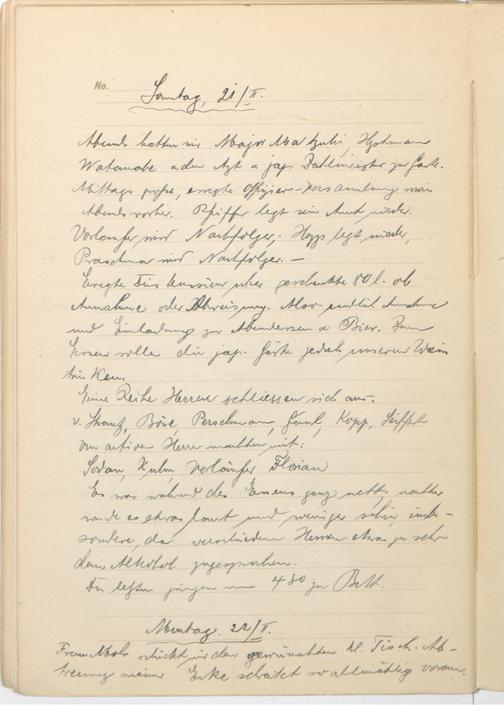 No. Sonntag, 21/II.
Abends hatten wir Major Matzuki, Hptmann
Watanabe u den Azt u jap. Zahlmeister zu Gast.
Mittags große, erregte Offizier-Versammlung wie
Abends vorher. Pfeiffer legt sein Amt nieder.
Vorläufer wird Nachfolger. Hopp legt nieder,
Praschma wird Nachfolger. –
Erregte Diskussion über geschenkte 80 l. ob
Annahme oder Abweisung. Also endlich Annahme
und Einladung zu Abendessen u Bier. Zum
Essen sollen die jap. Gäste jedoch unseren Wein
trinken.
Eine Reihe Herren schliessen sich aus.
v. Strauß, Böse, Perschmann, Kopp, Seiffert
von aktiven Herren machten mit:
Sodan, Kuhn, Vorläufer, Florian
Es war während des Essens ganz nett, nachher
wurde es etwas laut und weniger schön insbe-
sondere, da verschiedene Herren etwas zu sehr
dem Alkohol zugesprochen.
Die letzten gingen um 4 30 zu Bett.
Montag. 22/II.
Frau Mohr schickt mir den gewünschten kl. Tisch. Ab-
trennung meiner Ecke schreitet so allmählig voran.